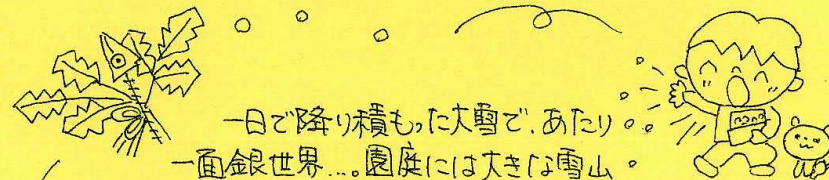 一日で降り積もった大雪で、あたり
一面銀世界…。園庭には大きな雪山